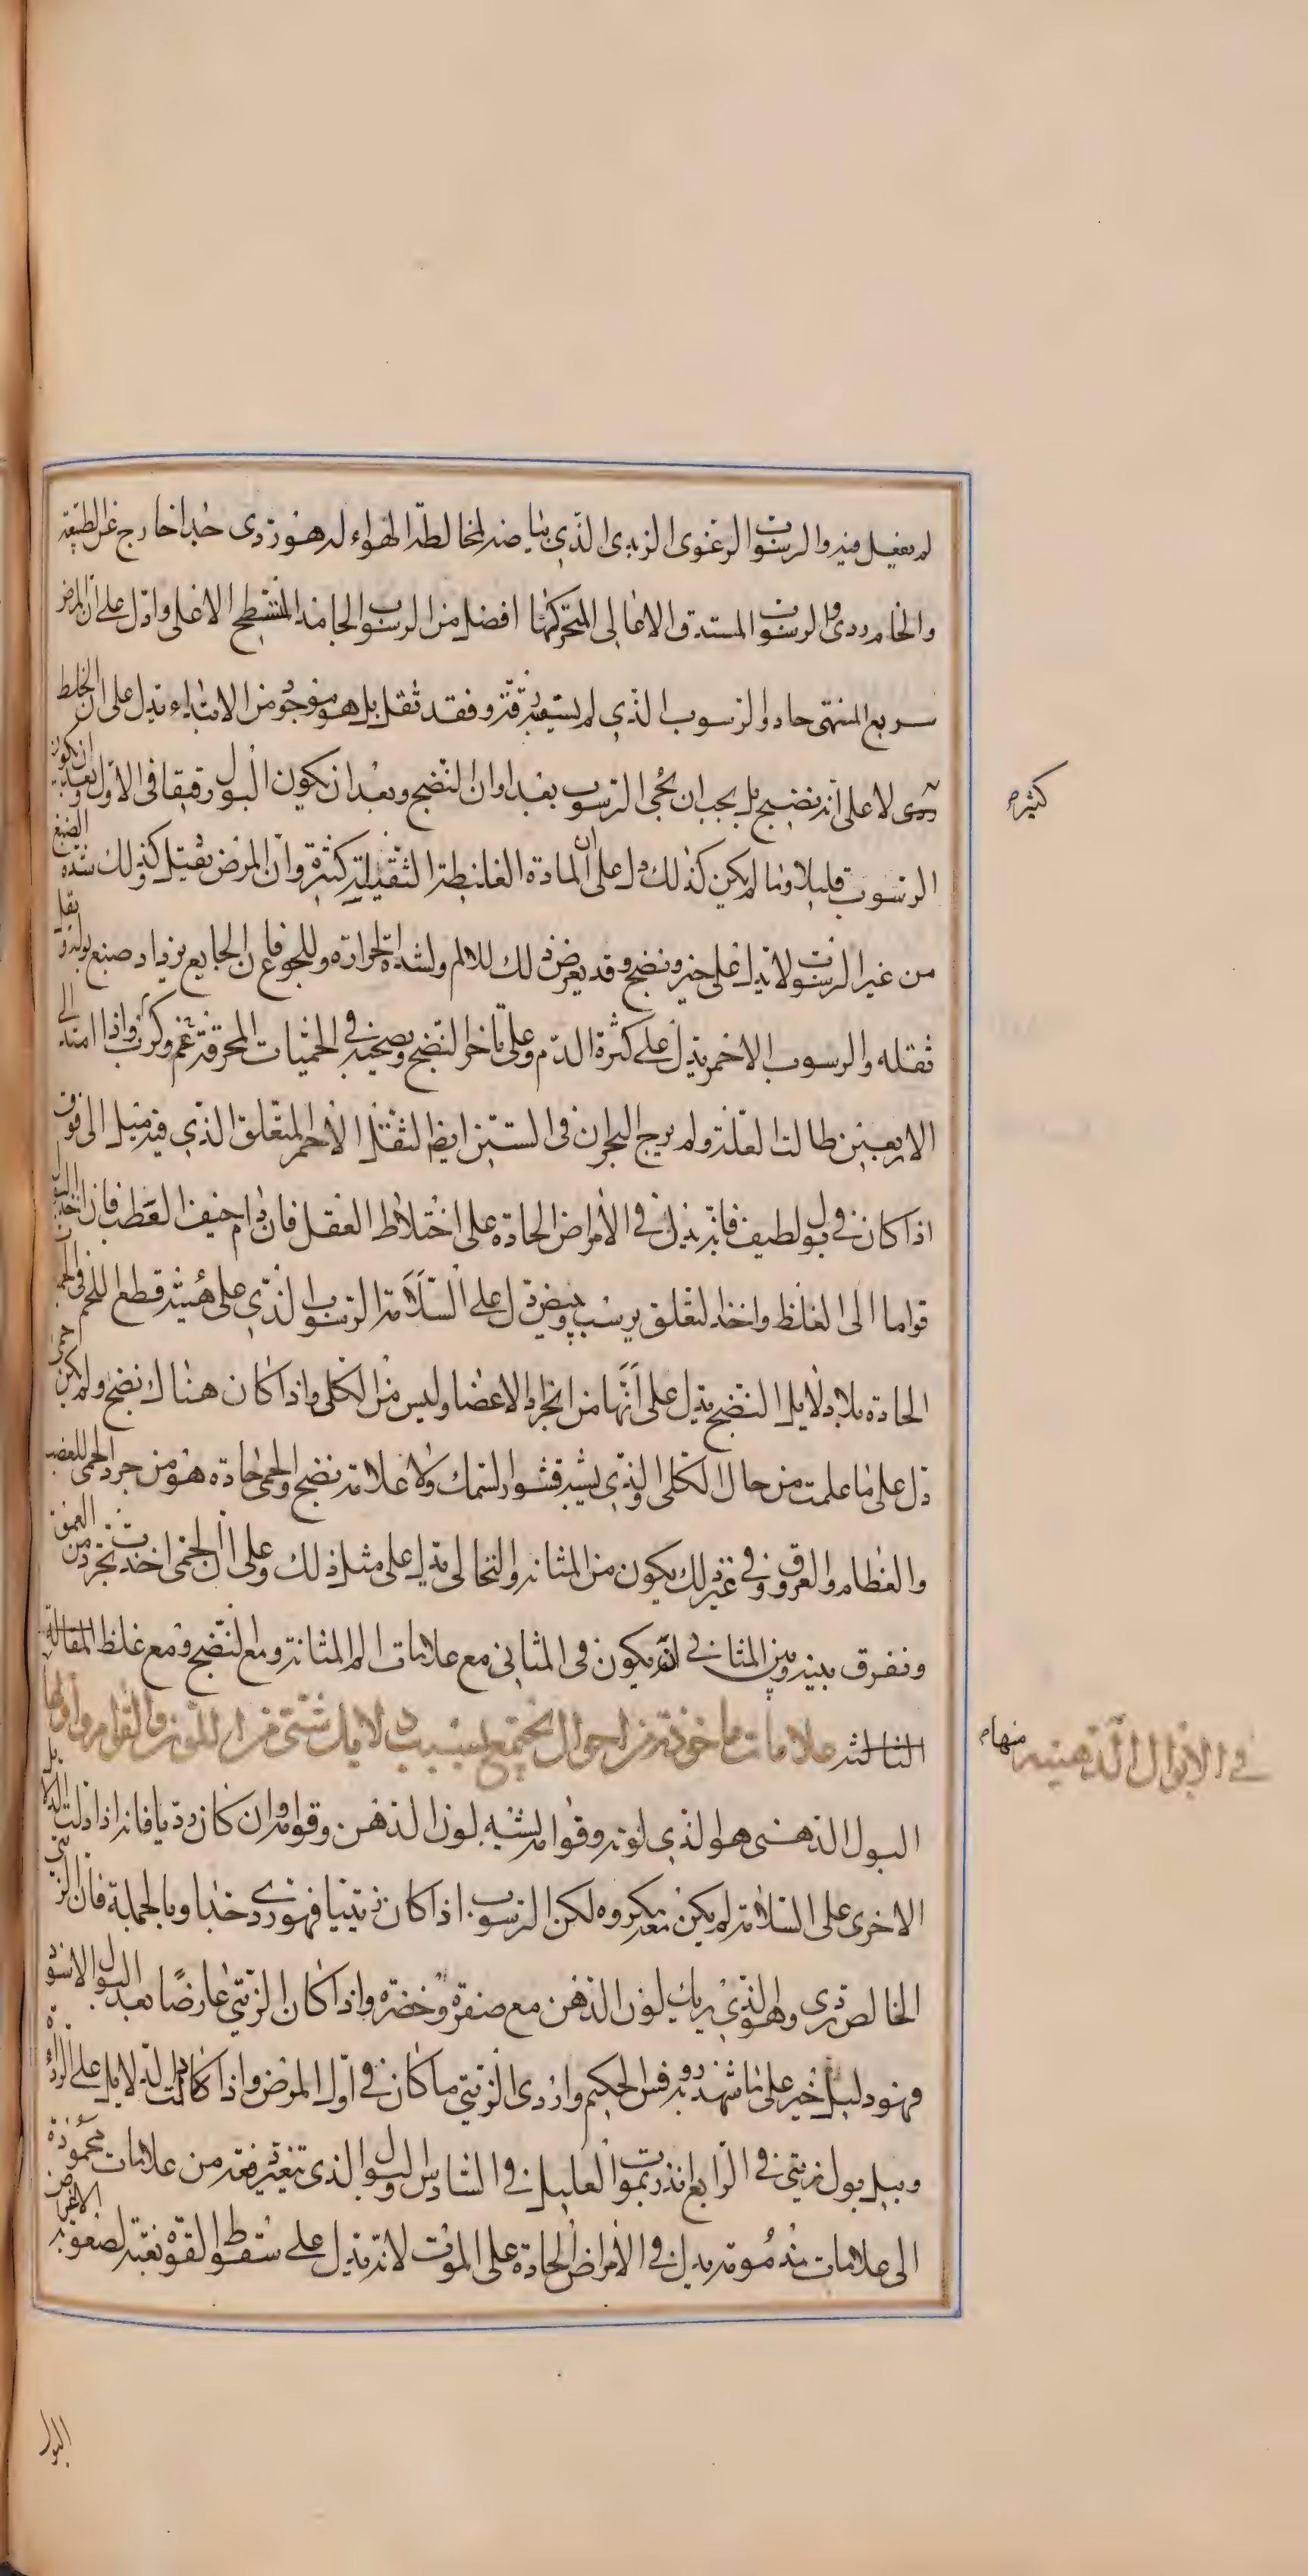 لم يفعل فيه والرسوب الرغوى الزبدى الذي بياضه لمخالطة الهواء له هو ردى جدا خارج عن الطبيعة
والخام ردى والرسوب المستدق الاعالى المتحركها افضل من الرسوب الجامد المنسطح الاعلى وادل على ان المرض
سريع المنتهى حاد والرسوب الذي لم يستعد برقة وفقد ثقل بل هو موجود من الابتداء يدل على ان الخلط
ردى لا على انه نضيج بل يجب ان يجى الرسوب بعد اوان النضج وبعد ان يكون البول رقيقا فى الاول وبعد ان يكون
الرسوب قليلا وما لم يكن كذلك دل على ان المادة الغليظة الثقيلة كثيرة وان المرض يقتل كذلك وشدة الصبغ
من غير الرسوب لا تدل على خير ونضج وقد يعرض ذلك للالم ولشدة الحرارة وللجوع فان الجايع يزداد صبغ بوله ويقل
ثقله والرسوب الاحمر يدل على كثرة الدم وعلى تاخر النضج ويصحبه في الحميات المحرقة غم وكرب واذا امتد الى
الاربعين طالت العلة ولم يرج البحران فى الستين ايضا الثفل الاحمر المتعلق الذي فيه ميل الى فوق
اذا كان في بول لطيف فانه يدل في الأمراض الحادة على اختلاط العقل فان دام خيف العطب فان اخذ البول
قواما الى الغلظ واخذ التعلق يرسب ويبيض دل على السلامة الرسوب الذي على هيئة قطع اللحم فى الحمى
الحادة بلا دلايل النضج يدل على أنها من انجراد الاعضا وليس من الكلى واذا كان هناك نضج ولم يكن حمى
دل على ما علمت من حال الكلى والذي يشبه قشور السمك ولا علامة نضج والحمى حادة هو من جرد الحمى للعصب
والعظام والعروق وفي غير ذلك يكون من المثانة والنخالى يدل على مثل ذلك وعلى ان الحمى اخذت تجرد من العمق
ونفرق بينه وبين المثاني في انه يكون فى المثاني مع علامات الم المثانة ومع النضج ومع غلظ المقالة
الثالثة علامات ماخوذة من احوال تجتمع بسبب دلايل شتى من اللون والقوام واولها
في الابوال الدهنية منها
البول الدهنى هو الذي لونه وقوامه يشبه لون الدهن وقوامه وان كان رديا فانه اذا دلت الدلايل
الاخرى على السلامة لم يكن معه مكروه لكن الرسوب اذا كان زيتيا فهو ردى جدا وبالجملة فان الزيتى
الخالص ردى وهو الذي يريك لون الدهن مع صفرة وخضرة واذا كان الزيتي عارضا بعد البول الاسود
فهو دليل خير على ما شهد به روفس الحكيم واردى الزيتي ما كان في اول المرض واذا كانت الدلايل على الرداءة
وبيل بول زيتي في الرابع انذر بموت العليل في السادس والبول الذى تغيره دفعة من علامات محمودة
الى علامات مذمومة يدل في الأمراض الحادة على الموت لانه يدل على سقوط القوة بغتة لصعوبة الاعراض
كثيرة
البول